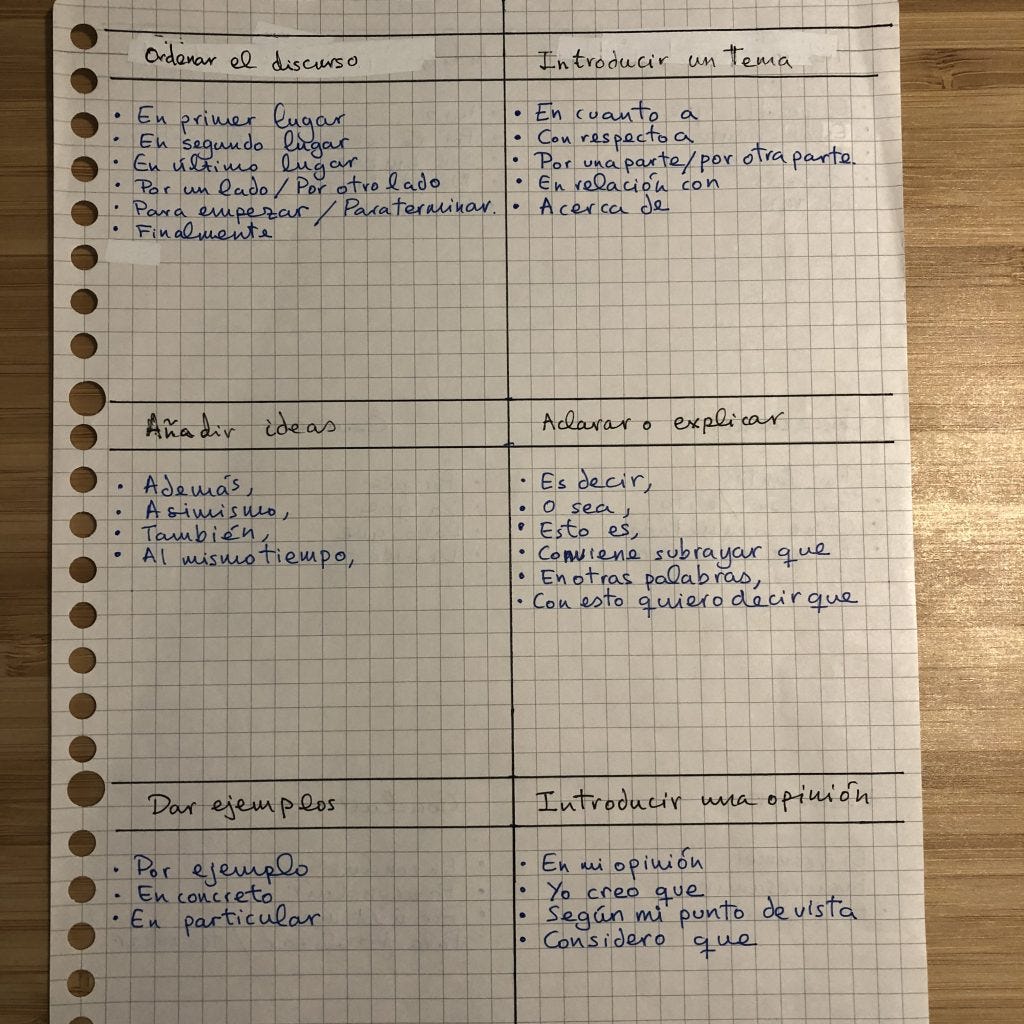 Ordenar el discurso
• En primer lugar
• En segundo lugar
• En último lugar
• Por un lado / Por otro lado
• Para empezar / Para terminar.
• Finalmente
Introducir un tema
• En cuanto a
• Con respecto a
• Por una parte / por otra parte.
• En relación con
• Acerca de
Añadir ideas
• Además,
• Asimismo,
• También,
• Al mismo tiempo,
Aclarar o explicar
• Es decir,
• O sea,
• Esto es,
• Conviene subrayar que
• En otras palabras,
• Con esto quiero decir que
Dar ejemplos
• Por ejemplo
• En concreto
• En particular
Introducir una opinión
• En mi opinión
• Yo creo que
• Según mi punto de vista
• Considero que